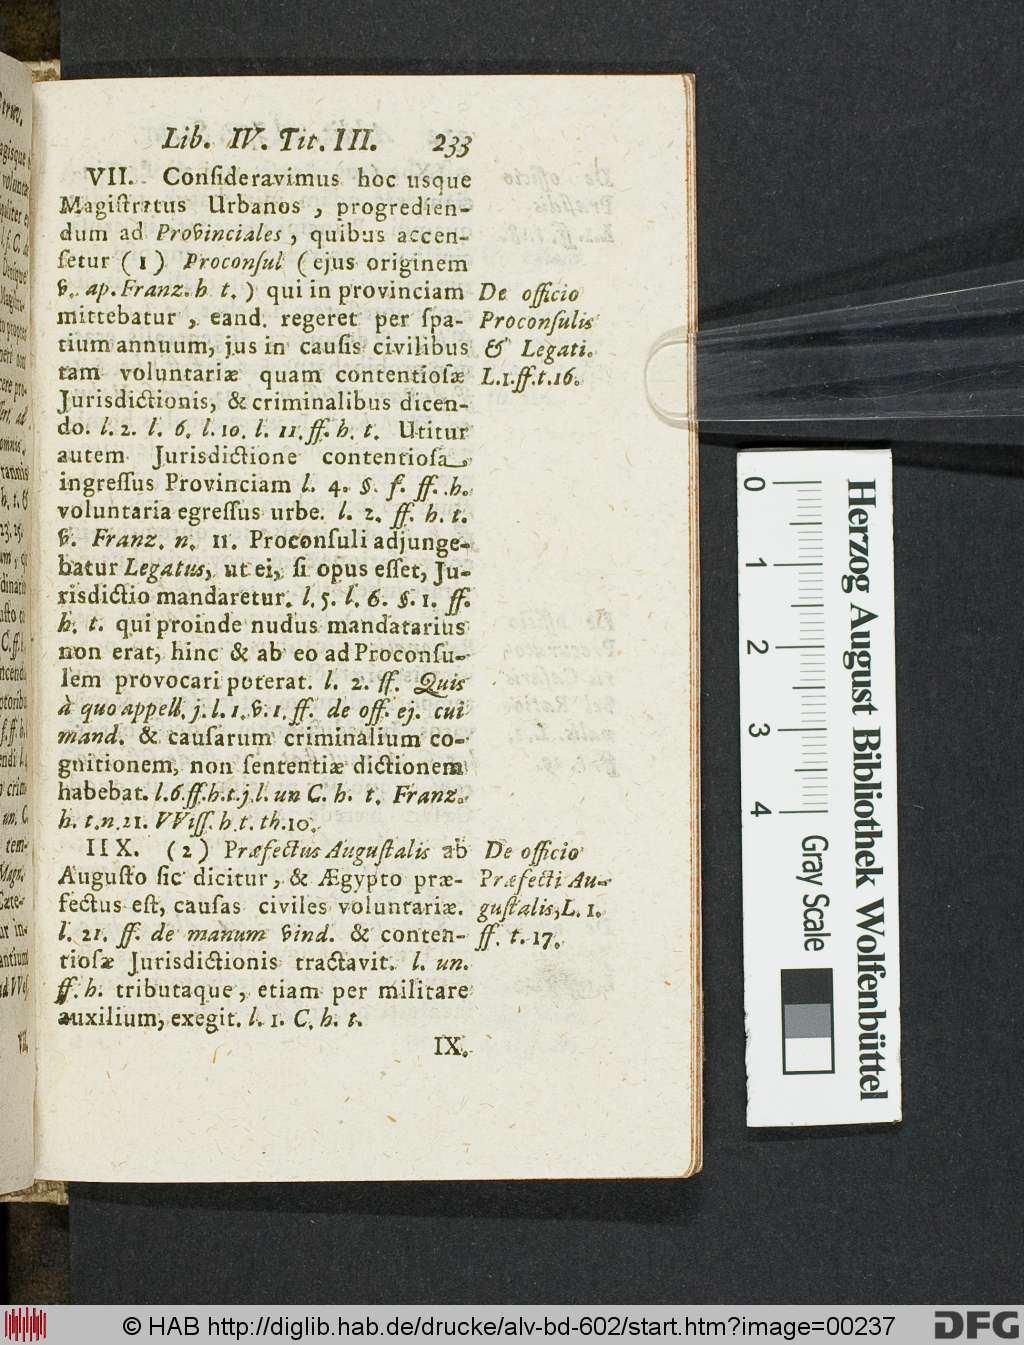 Lib. IV. Tit. III. 233
VII. Consideravimus hoc usque
Magistratus Urbanos, progredien-
dum ad Provinciales, quibus accen-
setur (1) Proconsul (ejus originem
v. ap. Franz. h t.) qui in provinciam
mittebatur, eand. regeret per spa-
tium annuum, jus in causis civilibus
tam voluntariæ quam contentiosæ
Jurisdictionis, & criminalibus dicen-
do. l. 2. l. 6. l. 10. l. 11. ff. h. t. Utitur
autem Jurisdictione contentiosa,
ingressus Provinciam l. 4. §. f. ff. h.
voluntaria egressus urbe. l. 2. ff. h. t.
v. Franz. n. 11. Proconsuli adjunge-
batur Legatus, ut ei, si opus esset, Ju-
risdictio mandaretur. l. 5. l. 6. §. 1. ff.
h. t. qui proinde nudus mandatarius
non erat, hinc & ab eo ad Proconsu-
lem provocari poterat. l. 2. ff. Quis
à quo appell. j. l. 1. v. 1. ff. de off. ej. cui
mand. & causarum criminalium co-
gnitionem, non sententiæ dictionem
habebat. l. 6 ff. h. t. j. l. un C. h. t. Franz.
h. t. n. 21. VViss. h. t. th. 10.
De officio
Proconsulis
& Legati.
L. 1. ff. t. 16.
IIX. (2) Præfectus Augustalis ab
Augusto sic dicitur, & Ægypto præ-
fectus est, causas civiles voluntariæ.
l. 21. ff. de manum vind. & conten-
tiosæ Jurisdictionis tractavit. l. un.
ff. h. tributaque, etiam per militare
auxilium, exegit. l. 1. C. h. t.
De officio
Præfecti Au-
gustalis, L. 1.
ff. t. 17.
IX.
0 1 2 3 4
Gray Scale
Herzog August Bibliothek Wolfenbüttel
© HAB http://diglib.hab.de/drucke/alv-bd-602/start.htm?image=00237
DFG